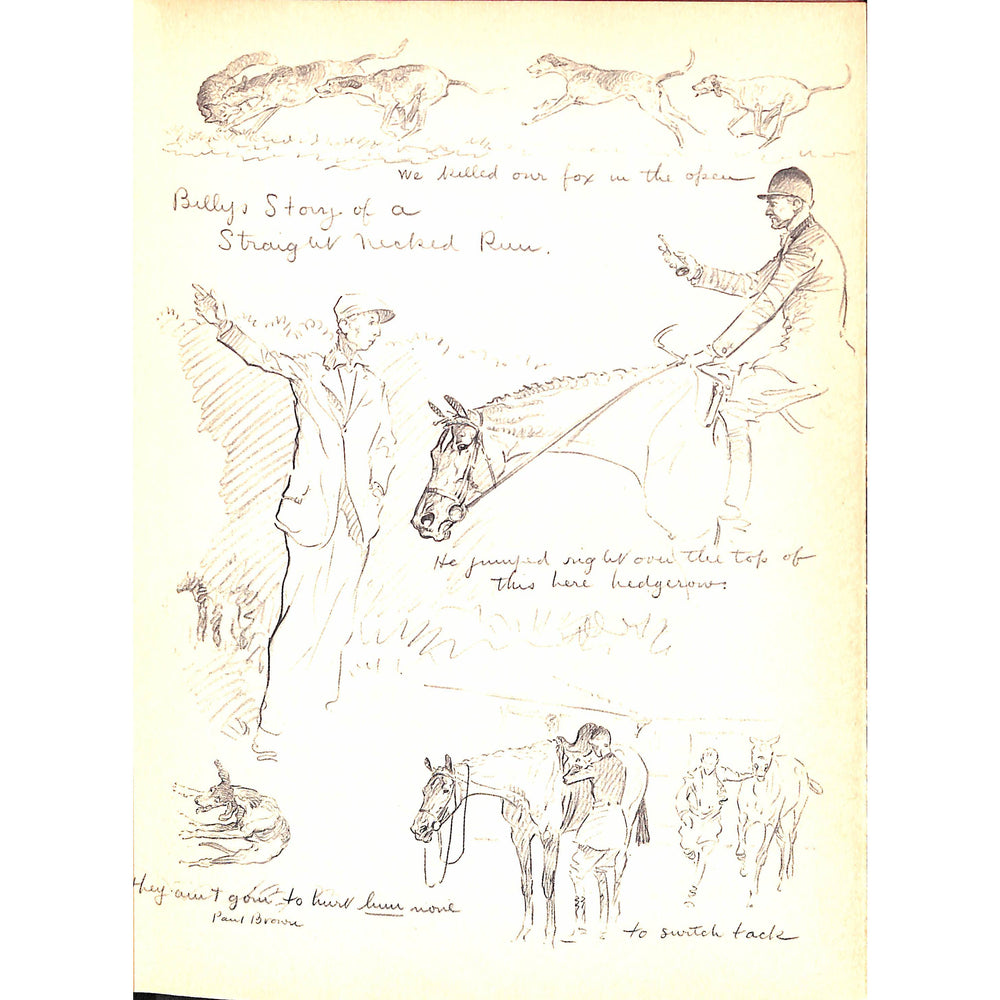 We killed our fox in the open
Billys Story of a
Straight Necked Run.
He jumped right over the top of
this here hedgerow.
They ain't goin' to hurt him none
Paul Brown
to switch tack